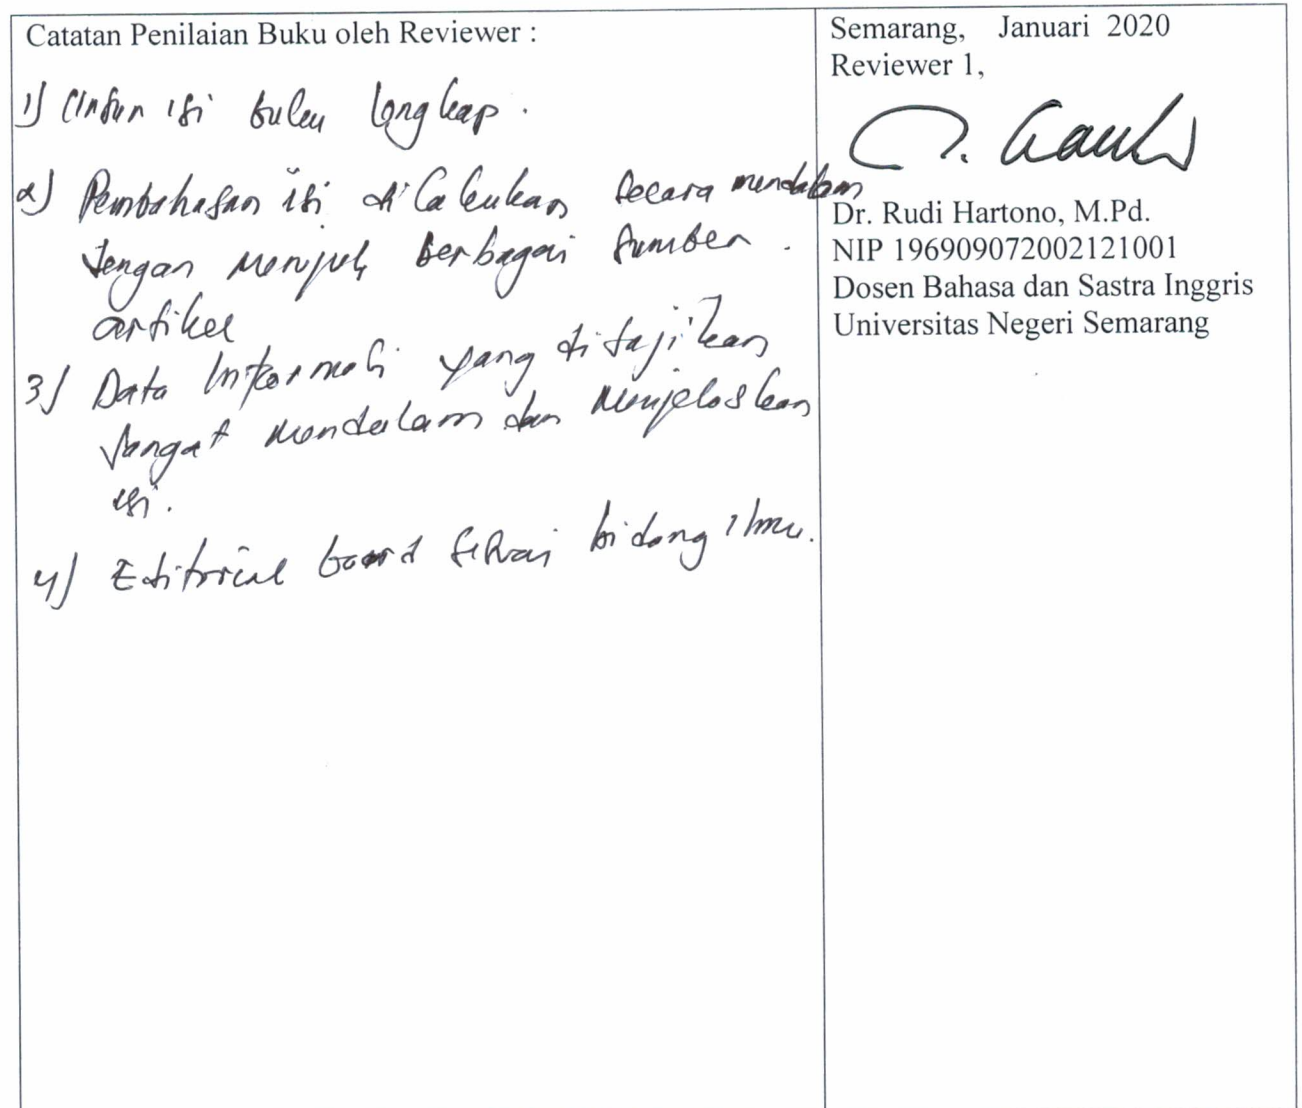 Catatan Penilaian Buku oleh Reviewer :
1) Unsur isi buku lengkap.
2) Pembahasan isi dilakukan secara mendalam
dengan merujuk berbagai sumber.
artikel
3) Data Informasi yang disajikan
sangat mendalam dan menjelaskan
isi.
4) Editorial board sesuai bidang ilmu.
Semarang, Januari 2020
Reviewer 1,
Dr. Rudi Hartono, M.Pd.
NIP 196909072002121001
Dosen Bahasa dan Sastra Inggris
Universitas Negeri Semarang